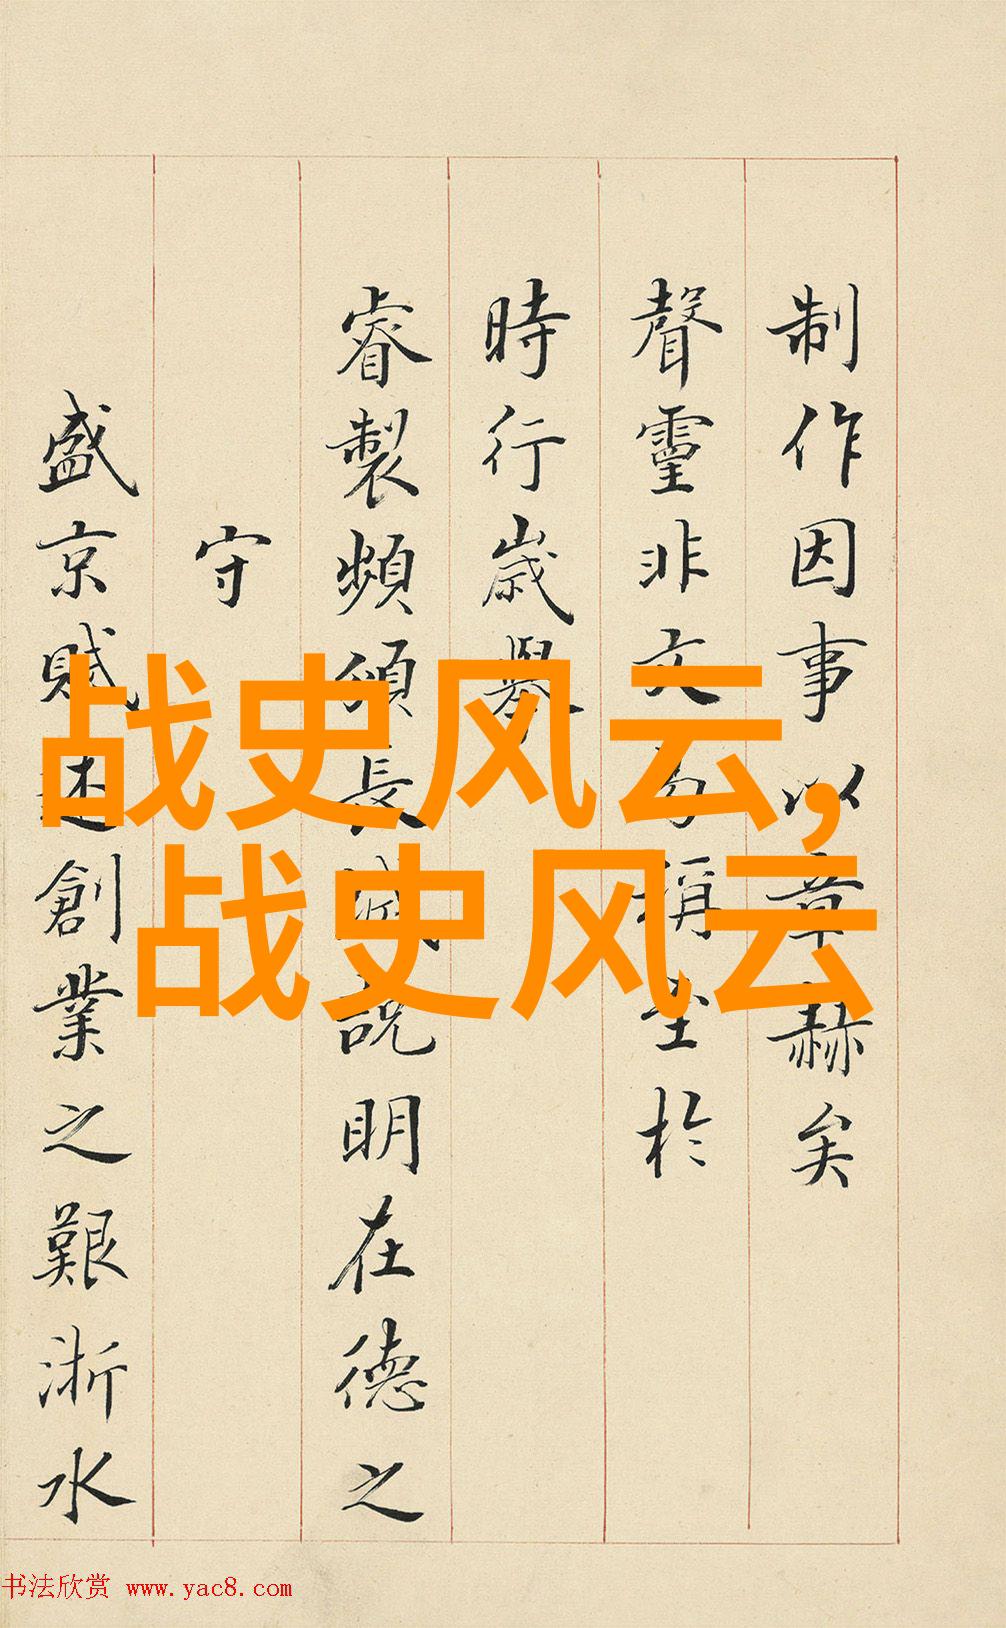 制作因事以章赫矣
聲靈非文勿稱至於
時行歲舉
睿製頻頒長誠說明在德之
守
盛京賦述創業之艱浙水
战史风云,
战史风云
书法欣赏 www.yac8.com